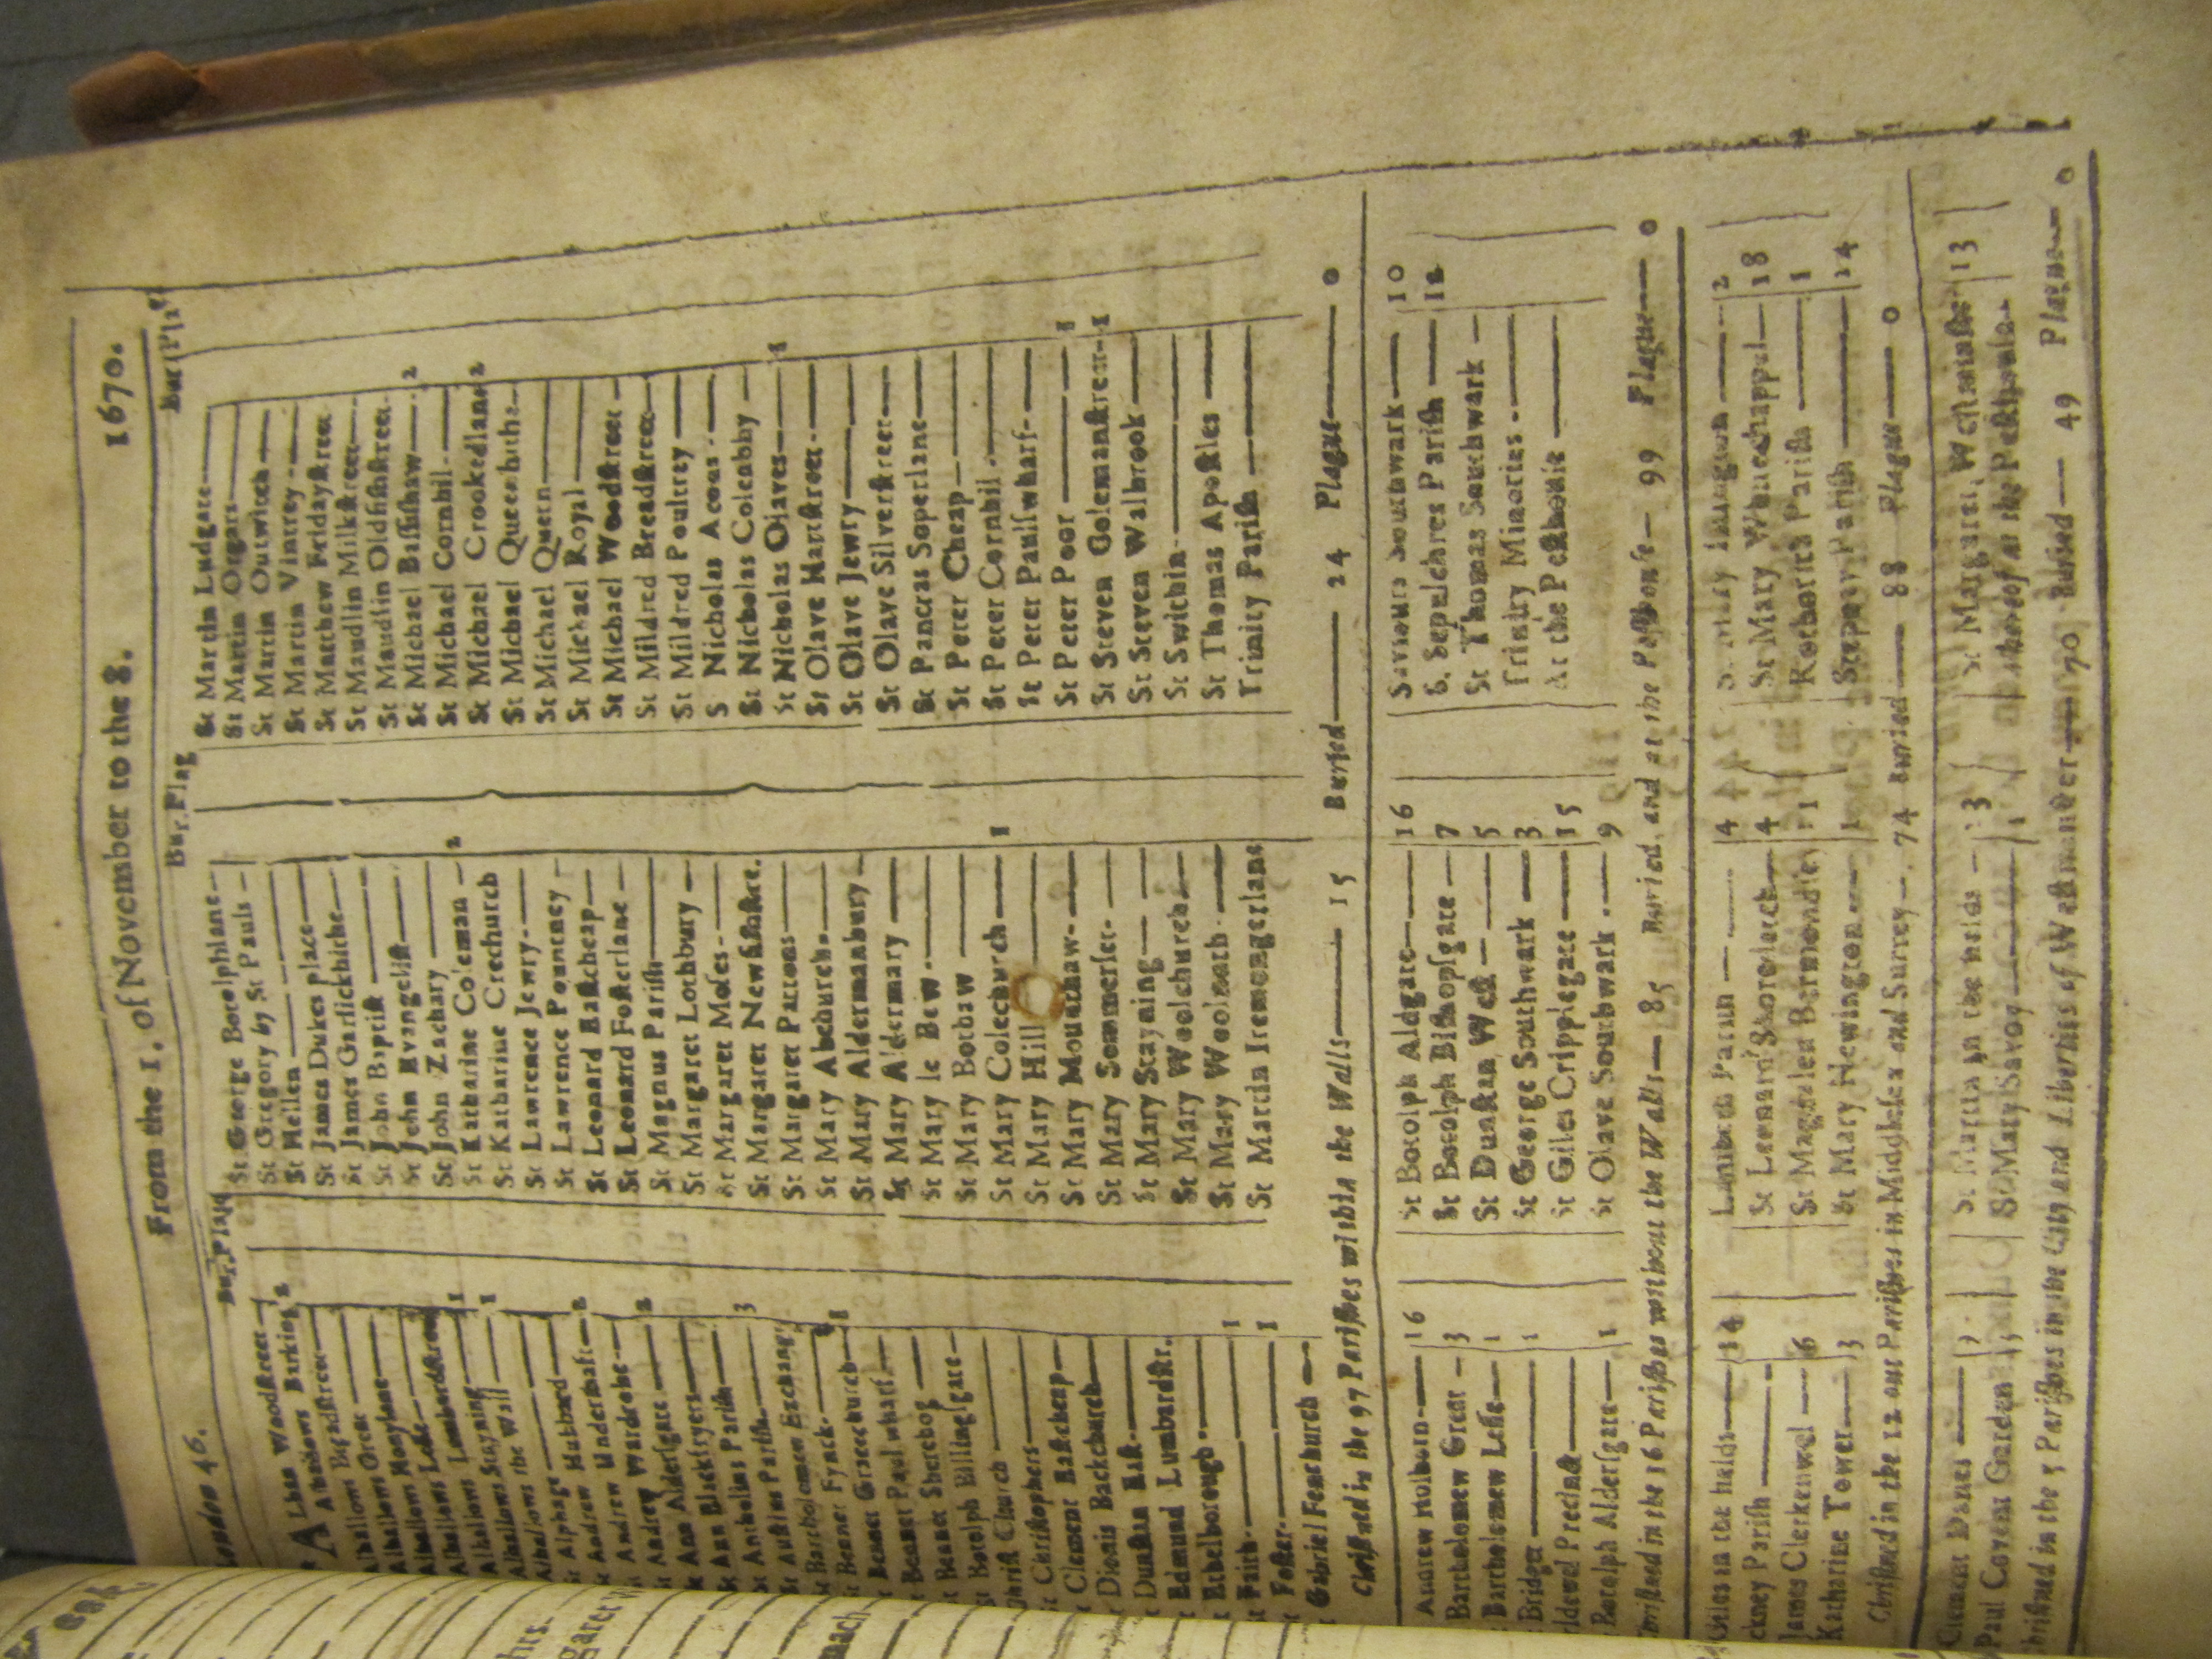 London 46. From the 1. of November to the 8. 1670.
Bur. Plag
Bur. Plag
Bur Plag
ALban Woodstreet
Alhallows Barking 2
Alhallows Breadstreet
Alhallows Great
Alhallows Honylane
Alhallows Lesse
Alhallows Lumbardstreet 1
Alhallows Stayning 1
Alhallows the Wall
St Alphage
St Andrew Hubbard 2
St Andrew Undershaft
St Andrew Wardrobe 2
St Ann Aldersgate
St Ann Blackfryers
St Antholins Parish 3
St Austins Parish
St Bartholomew Exchange
St Bennet Fynck
St Bennet Gracechurch 1
St Bennet Paul wharf
St Bennet Sherehog
St Botolph Billingsgate
Christ Church
St Christophers
St Clement Eastcheap
St Dionis Backchurch
St Dunstan East
St Edmund Lumbardstr.
St Ethelborough 1
St Faith 1
St Foster
St Gabriel Fenchurch
St George Botolphlane
St Gregory by St Pauls
St Hellen
St James Dukes place
St James Garlickhithe
St John Baptist
St John Evangelist
St John Zachary
St Katharine Coleman 2
St Katharine Creechurch
St Lawrence Jewry
St Lawrence Pountney
St Leonard Eastcheap
St Leonard Fosterlane
St Magnus Parish
St Margaret Lothbury
St Margaret Moses
St Margaret Newfishstre.
St Margaret Pattons
St Mary Abchurch
St Mary Aldermanbury
St Mary Aldermary
St Mary le Bow
St Mary Bothaw
St Mary Colechurch 1
St Mary Hill
St Mary Mouthaw
St Mary Sommerset
St Mary Stayning
St Mary Woolchurch
St Mary Woolnoth
St Martin Iremongerlane
St Martin Ludgate
St Martin Orgars
St Martin Outwitch
St Martin Vintrey
St Matthew Fridaystreet
St Maudlin Milkstreet
St Maudlin Oldfishstreet
St Michael Bassishaw 2
St Michael Cornhil
St Michael Crookedlane 2
St Michael Queenhithe
St Michael Quern
St Michael Royal
St Michael Woodstreet
St Mildred Breadstreet
St Mildred Poultrey
S Nicholas Acons
St Nicholas Coleabby
St Nicholas Olaves 1
St Olave Hartstreet
St Olave Jewry
St Olave Silverstreet
St Pancras Soperlane
St Peter Cheap
St Peter Cornhil
St Peter Paulswharf
St Peter Poor 1
St Steven Colemanstreet 1
St Steven Walbrook
St Swithin
St Thomas Apostles
Trinity Parish
Christned in the 97 Parishes within the Walls 15 Buried 24 Plague 0
Andrew Holborn 16
Bartholomew Great 3
Bartholomew Lesse 1
Bridget 1
Bridewel Precinct
Botolph Aldersgate 1
St Botolph Aldgate 16
St Botolph Bishopsgate 7
St Dunstan West 5
St George Southwark 3
St Giles Cripplegate 15
St Olave Southwark 9
Saviours Southwark 10
S. Sepulchres Parish 12
St Thomas Southwark
Trinity Minories
At the Pesthouse
Christned in the 16 Parishes without the Walls 85 Buried, and at the Pesthouse 99 Plague 0
Giles in the fields 14
Hackney Parish
James Clerkenwel 6
Katharine Tower 3
Lambeth Parish 4
St Leonard Shoreditch 4
St Magdalen Bermondsey 11
St Mary Newington 1
St Mary Islington 2
St Mary Whitechappel 18
Rotherith Parish 1
Stepney Parish 24
Christned in the 12 out Parishes in Middlesex and Surrey 74 Buried 88 Plague 0
Clement Danes
Paul Covent Garden
St Martin in the fields 13
St Mary Savoy 1
St Margaret Westminster 13
whereof at the Pesthouse
Christned in the 5 Parishes in the City and Liberties of Westminster Buried 49 Plague 0